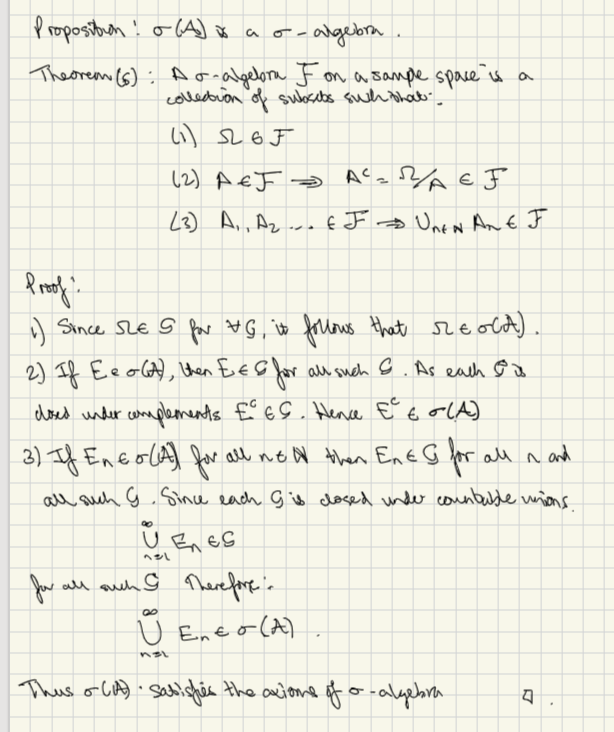 Proposition: σ(A) is a σ-algebra.
Theorem(s): A σ-algebra F on a sample space is a
collection of subsets such that:
(1) Ω ∈ F
(2) A ∈ F ⇒ Aᶜ = Ω/A ∈ F
(3) A₁, A₂ ... ∈ F ⇒ ∪n∈N An ∈ F
Proof:
1) Since Ω ∈ G for ∀G, it follows that Ω ∈ σ(A).
2) If E ∈ σ(A), then E ∈ G for all such G. As each G is
closed under complements Eᶜ ∈ G. Hence Eᶜ ∈ σ(A)
3) If En ∈ σ(A) for all n ∈ N then En ∈ G for all n and
all such G. Since each G is closed under countable unions.
∞
∪ En ∈ G
n=1
for all such G Therefore:
∞
∪ En ∈ σ(A).
n=1
Thus σ(A) satisfies the axioms of σ-algebra □.